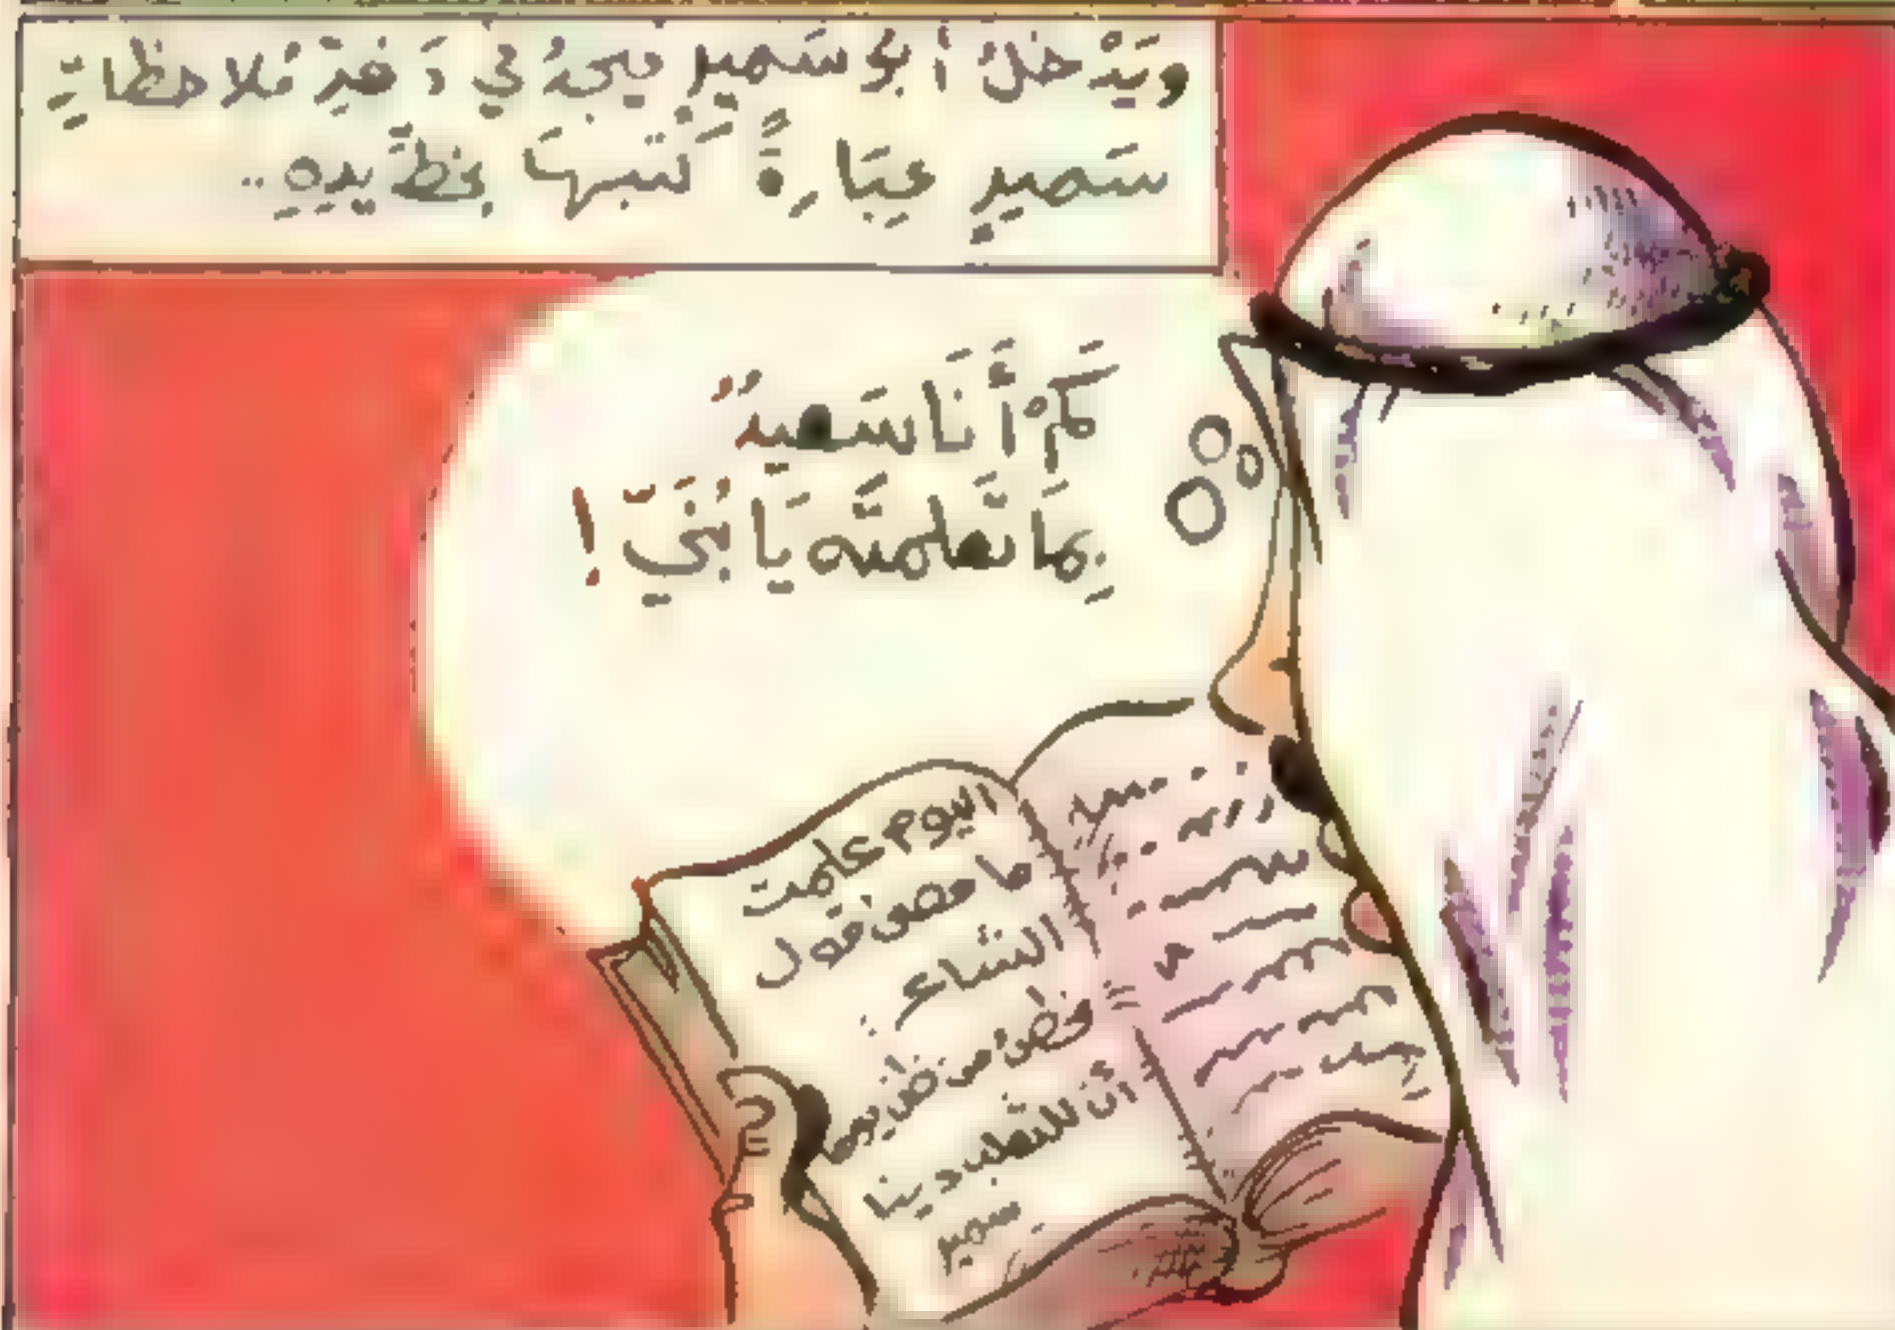 وَيَدْخُلُ أَبُو سَمِيرٍ فيجدُ في دَفترِ مُلاحظاتِ
سَميرٍ عِبَارةً كَتبهَا بخطِّ يدِهِ..
كَمْ أَنَا سَعيدٌ
بِمَا تَعلمتَه يَا بُنَيّ!
اليوم علمت
ما معنى قول
الشاعر:
مخطئ من ظن يوما
أن للثعلب دينا
سمير